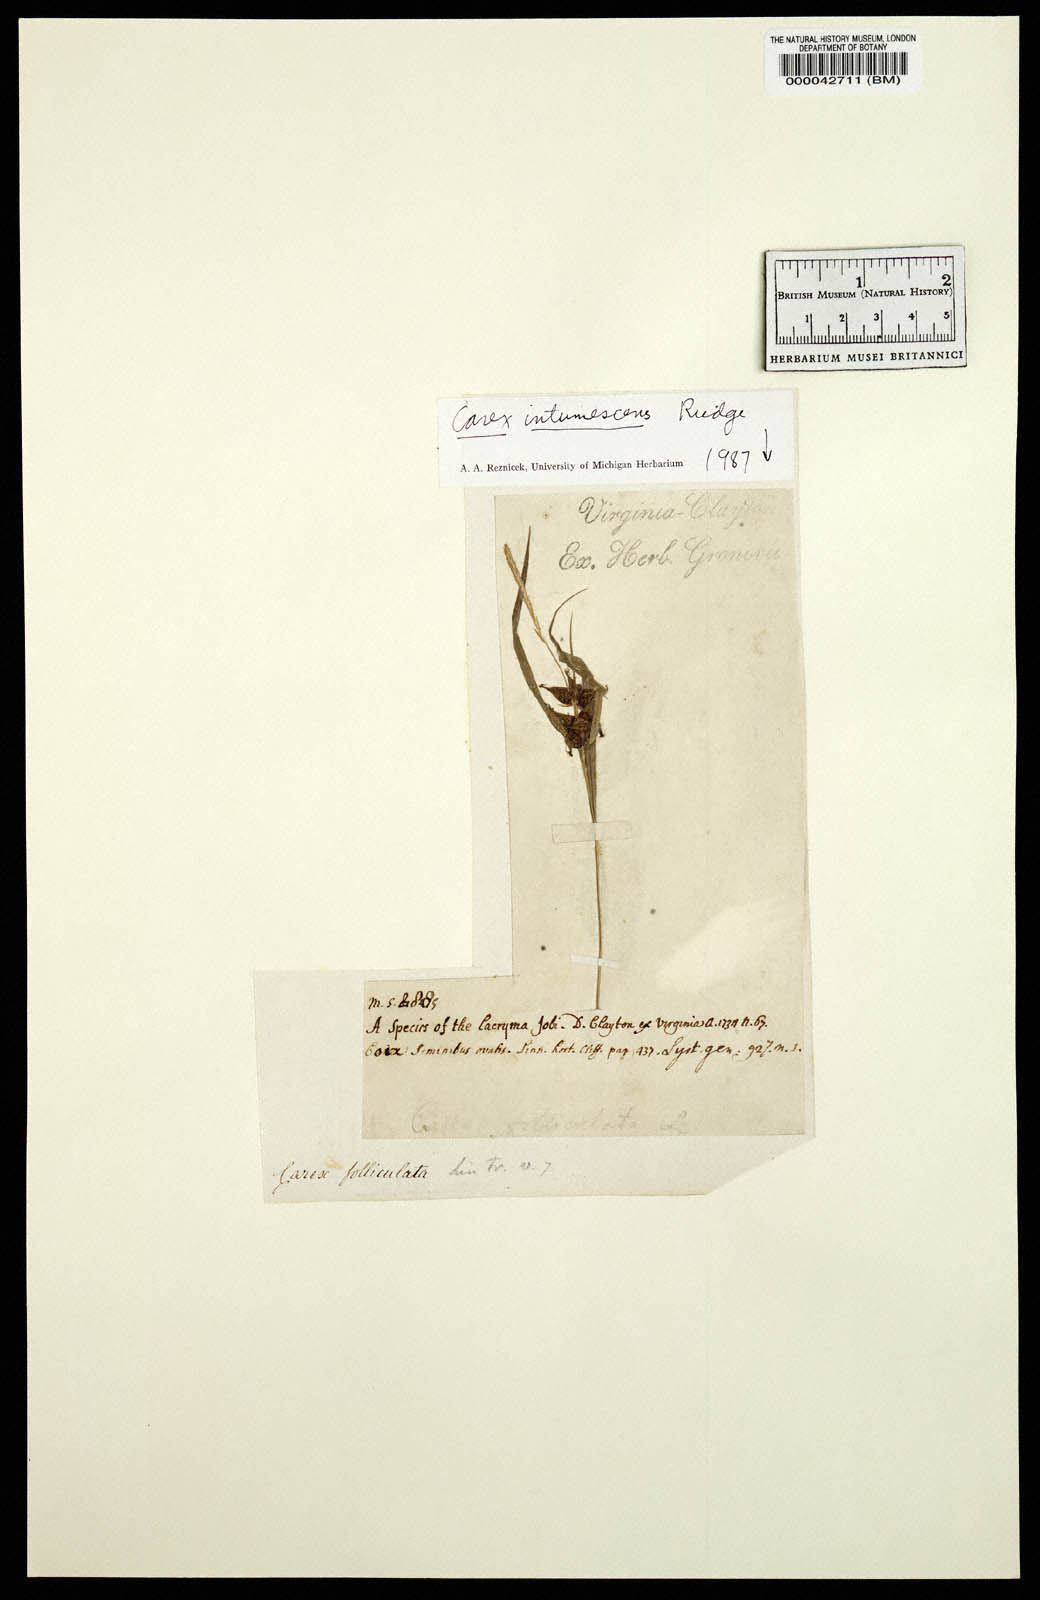 THE NATURAL HISTORY MUSEUM, LONDON
DEPARTMENT OF BOTANY
000042711 (BM)
1 2
BRITISH MUSEUM (NATURAL HISTORY)
1 2 3 4 5
HERBARIUM MUSEI BRITANNICI
Carex intumescens Rudge
A. A. Reznicek, University of Michigan Herbarium 1987 ↓
Virginia - Clayton
Ex. Herb. Gronovii
m. s.
A Species of the lacryma Jobi. D. Clayton ex Virginia a. n. 67.
Coix Seminibus ovatis. Linn. hort. Cliff. pag. 437. Syst. gen. 927. n. 1.
folliculata L
Carex folliculata Lin